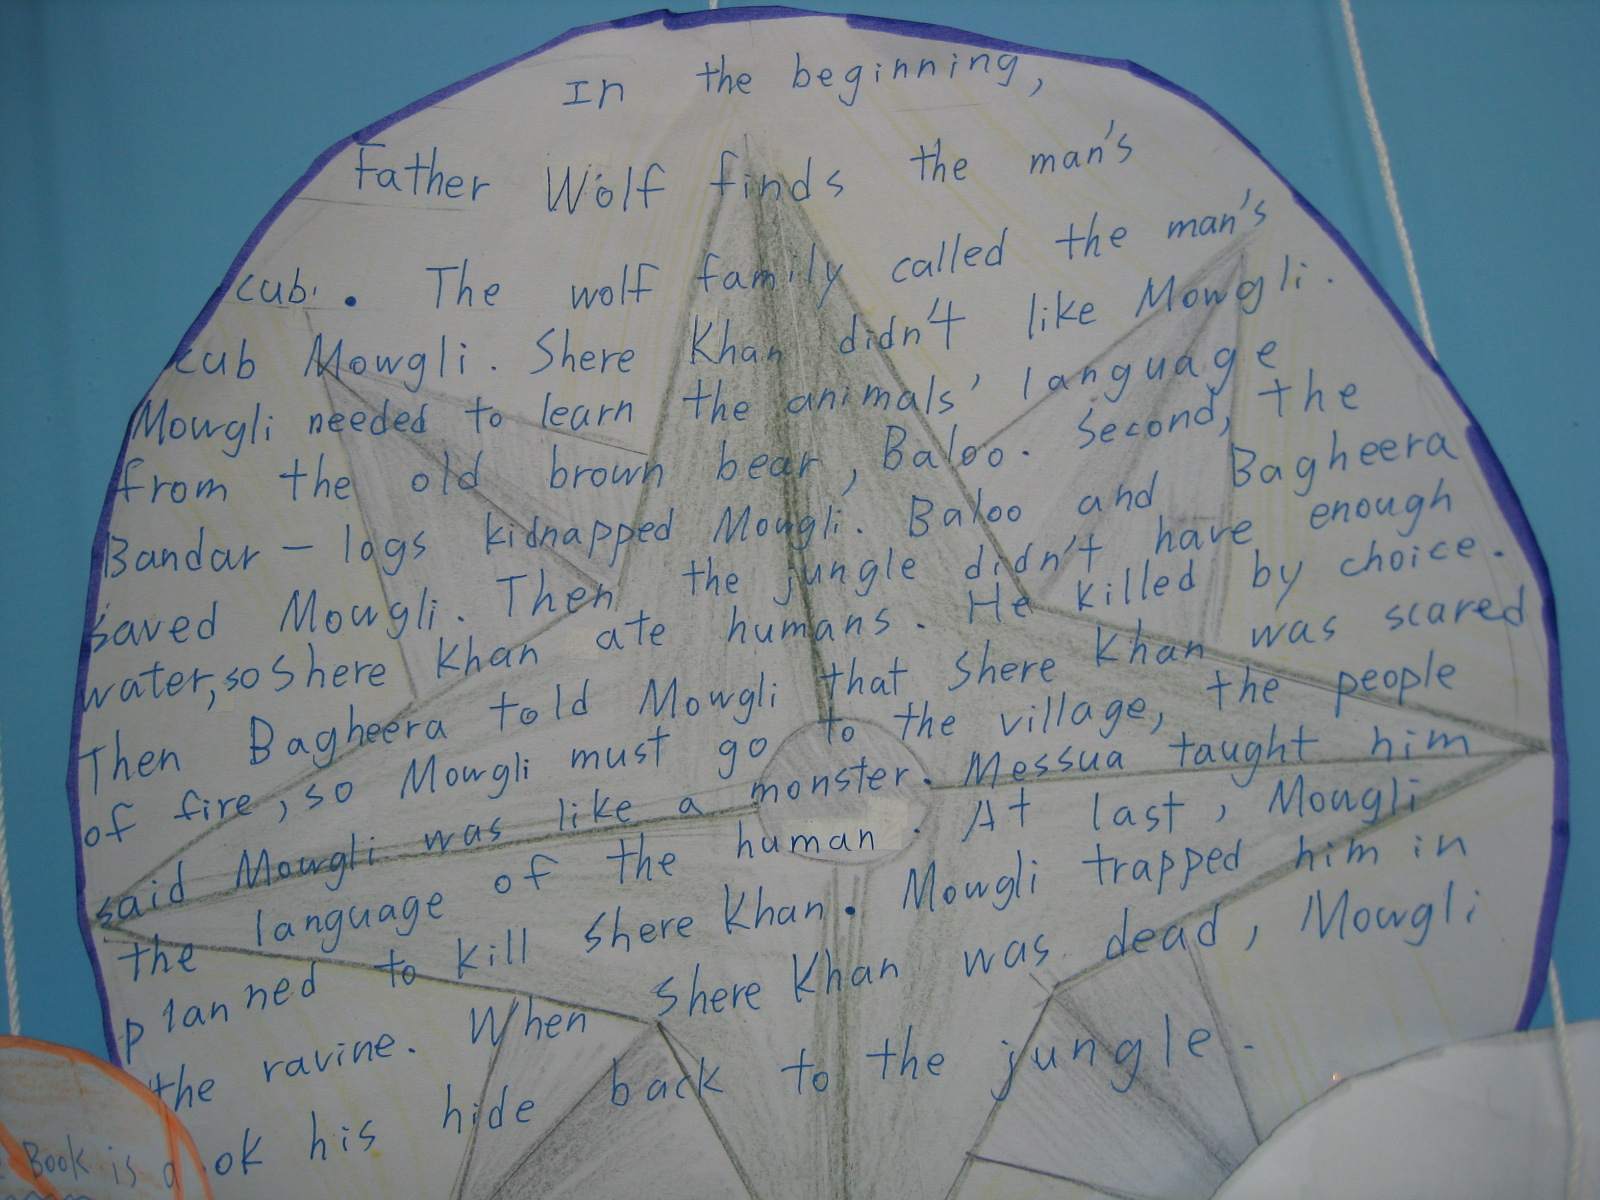 In the beginning,
Father Wolf finds the man's
cub. The wolf family called the man's
cub Mowgli. Shere Khan didn't like Mowgli.
Mowgli needed to learn the animals' language
from the old brown bear, Baloo. Second, the
Bandar - logs kidnapped Mowgli. Baloo and Bagheera
saved Mowgli. Then the jungle didn't have enough
water, so Shere Khan ate humans. He killed by choice.
Then Bagheera told Mowgli that Shere Khan was scared
of fire, so Mowgli must go to the village, the people
said Mowgli was like a monster. Messua taught him
the language of the human. At last, Mowgli
planned to kill Shere Khan. Mowgli trapped him in
the ravine. When Shere Khan was dead, Mowgli
ok his hide back to the jungle.
Book is a